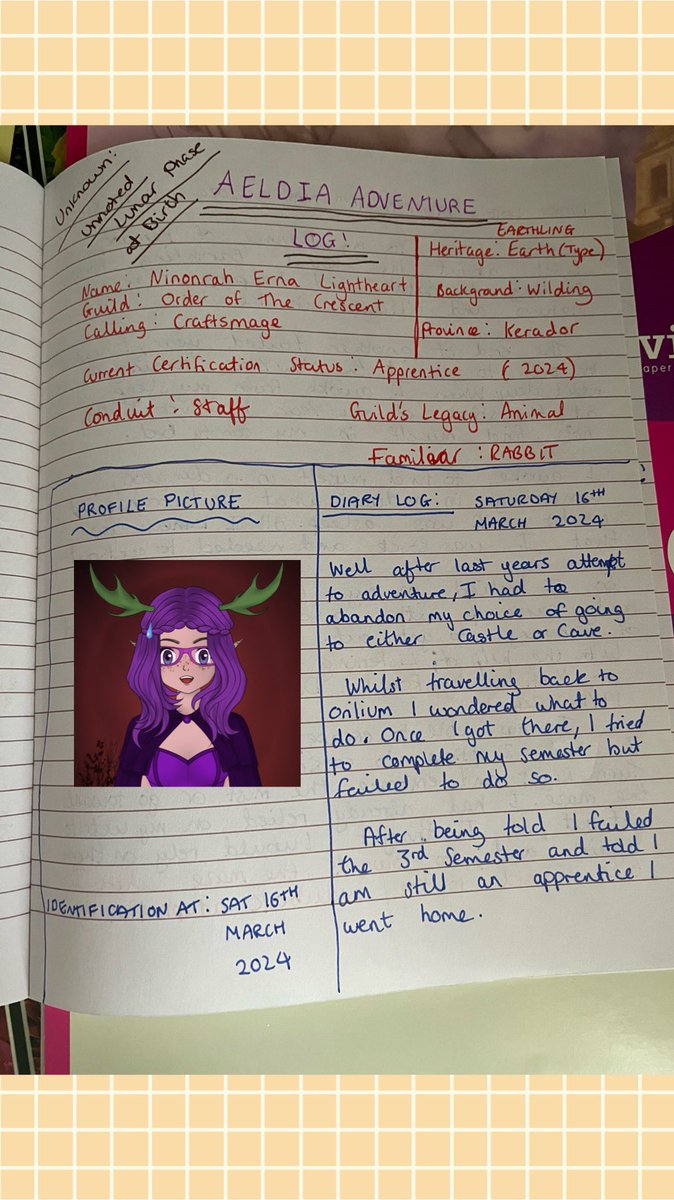 Unknown:
Unnoted
Lunar Phase
at Birth
AELDIA ADVENTURE
LOG!
EARTHLING
Heritage: Earth (Type)
Name: Ninonrah Erna Lightheart
Background: Wilding
Guild: Order of The Crescent
Calling: Craftsmage
Province: Kerador
Current Certification Status: Apprentice (2024)
Conduit: Staff
Guild's Legacy: Animal
Familiar: RABBIT
PROFILE PICTURE
IDENTIFICATION AT: SAT 16TH
MARCH
2024
DIARY LOG: SATURDAY 16TH
MARCH 2024
Well after last years attempt
to adventure, I had to
abandon my choice of going
to either Castle or Cave.
Whilst travelling back to
Orilium I wondered what to
do. Once I got there, I tried
to complete my semester but
failed to do so.
After being told I failed
the 3rd Semester and told I
am still an apprentice I
went home.
vi
aper